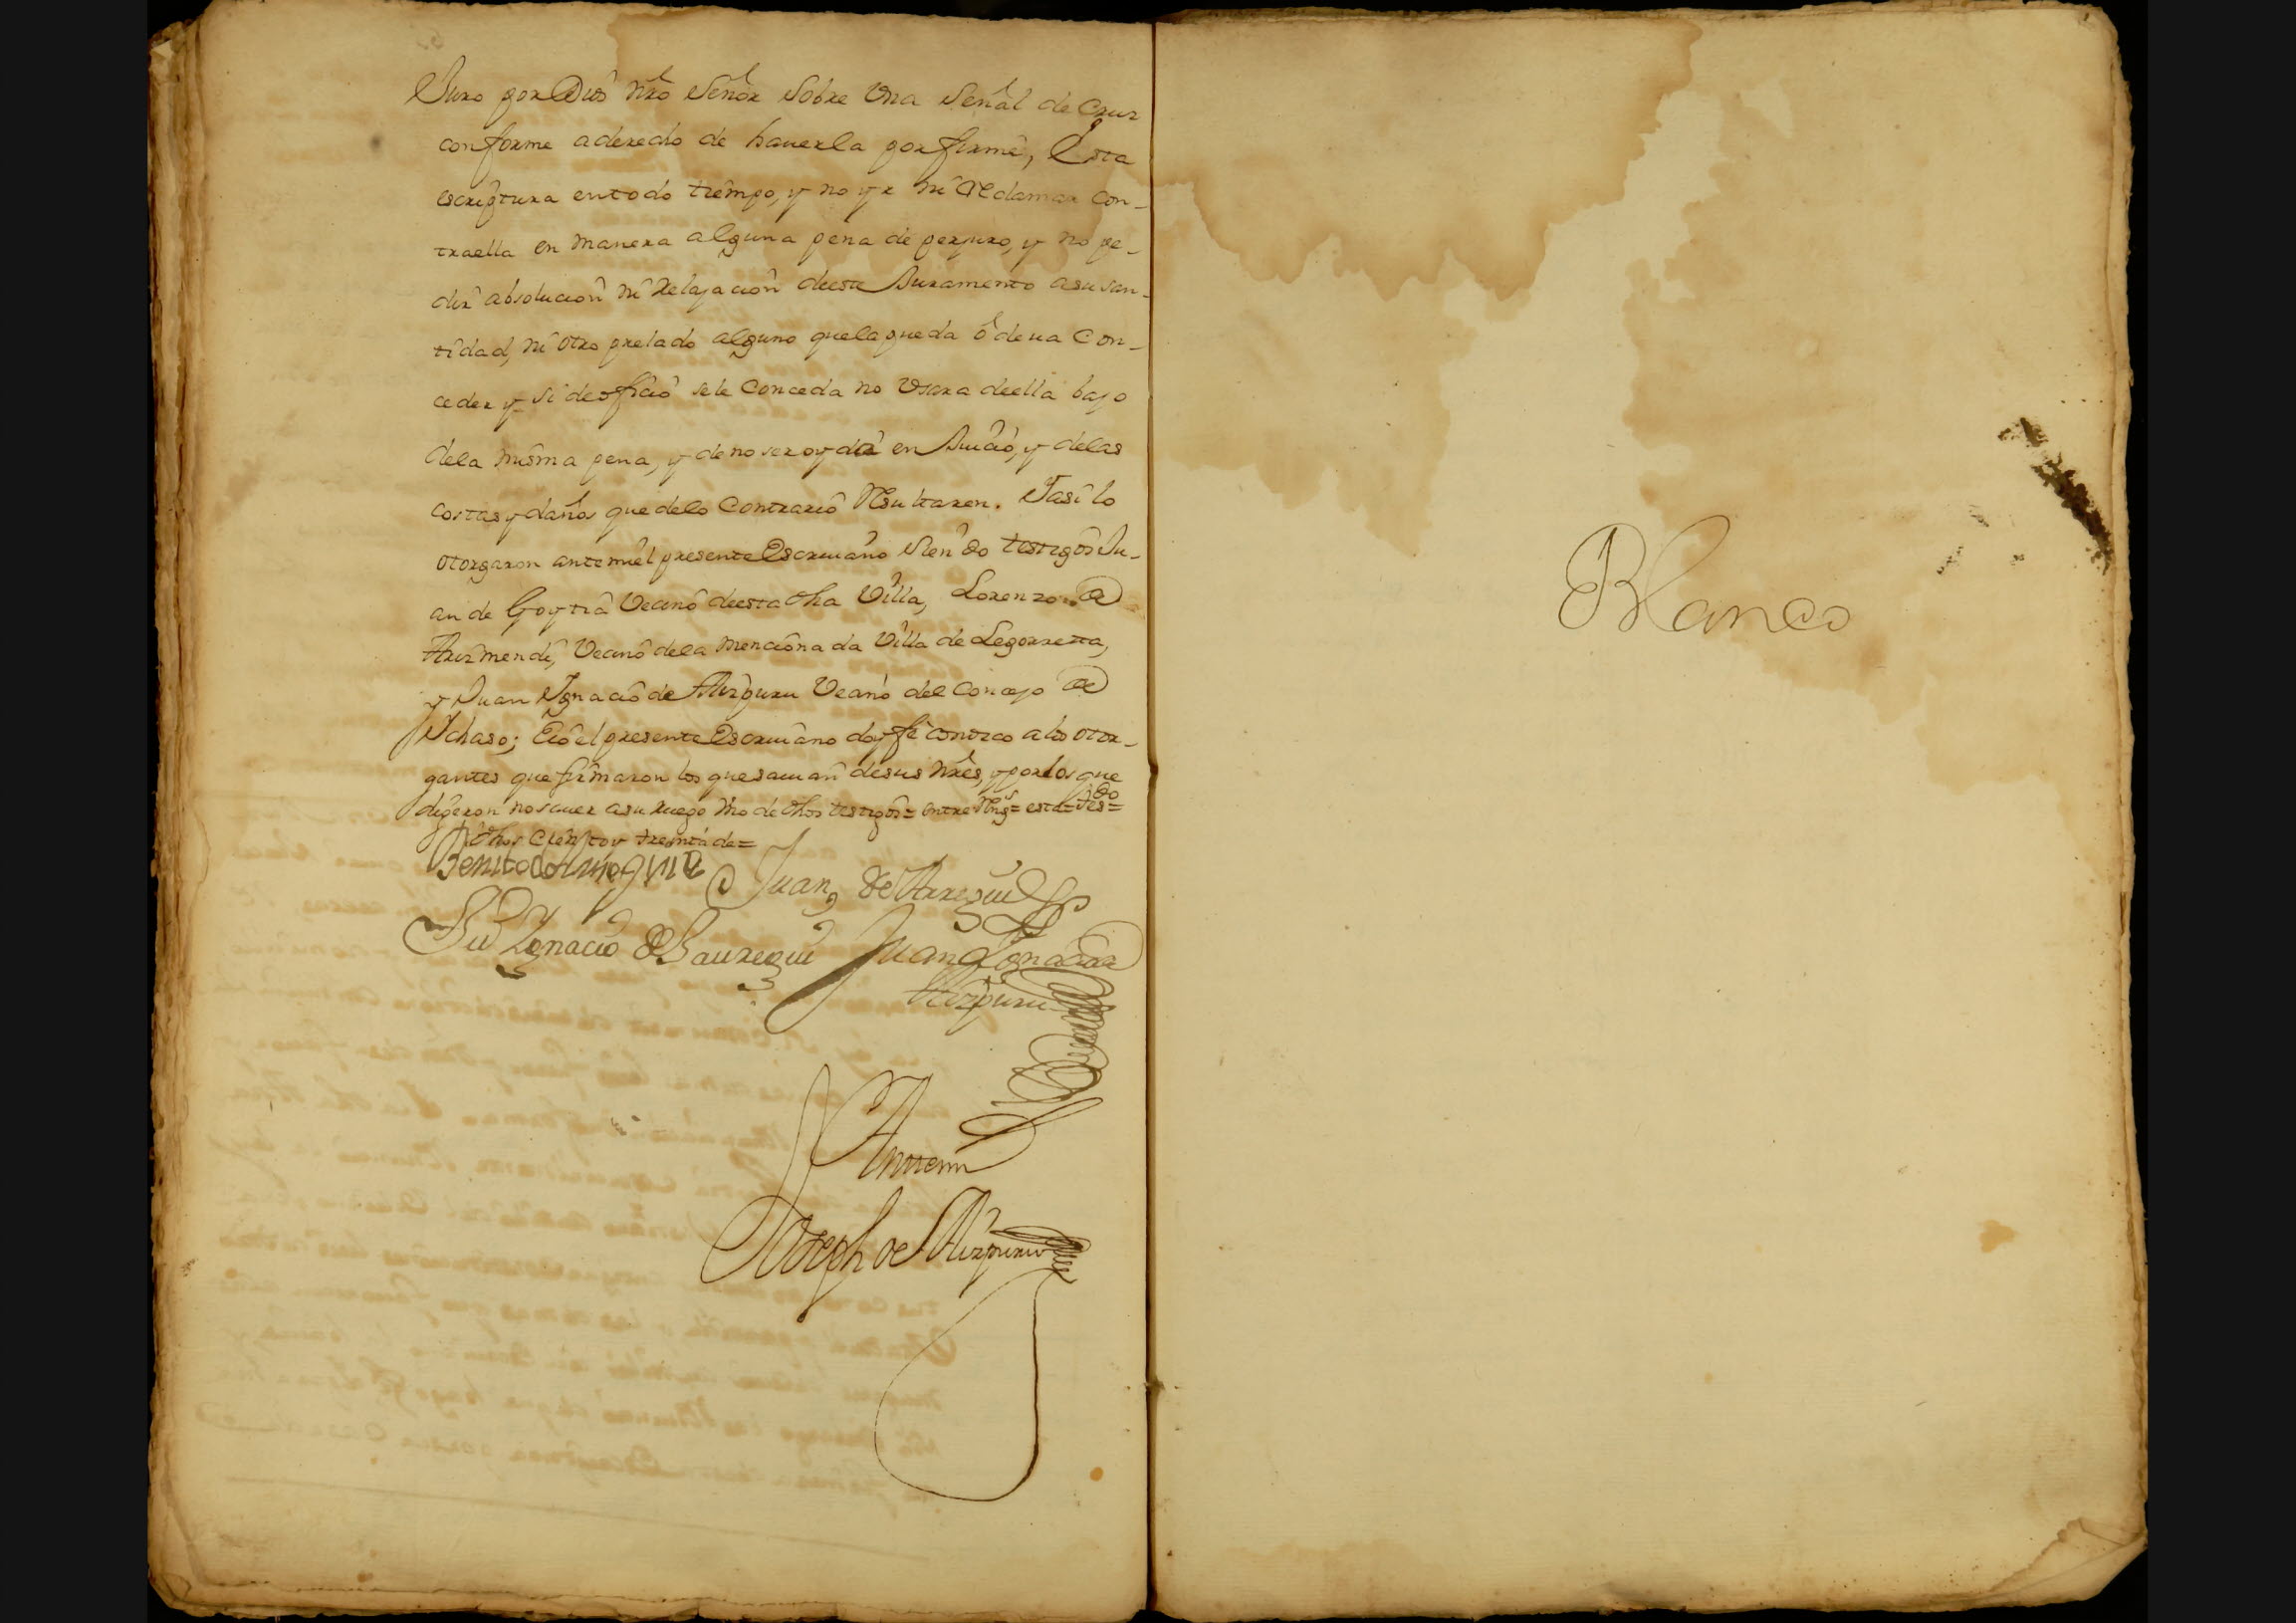 Juro por Dios nrô Señor sobre Una Señal de Cruz
conforme aderecho de hauerla por firme, Esta
escriptura entodo tiempo, y no yr ni Reclamar con-
traella en manera alguna pena de perjuro, y no pe-
dir absolucion ni Relajacion deeste Juramento asusan-
tidad, ni otro prelado alguno quelapueda ó deua Con-
ceder y si deofficio sele Conceda no Usara deella bajo
dela misma pena, y deno ser oyda en Juicio, y delas
costas y daños que delo Contrario Resultaren. Jasi lo
otorgaron antemiel presente Escriuano Siendo testigos Ju-
an de Goytia Vecino deesta dha Villa, Lorenzo de
Arizmendi, Vecino dela menciona da Villa de Legorreta,
y Juan Ignacio de Aizpuru Vecino del Concejo de
Ichaso; Eio el presente Escriuano doy fé conozco a los otor-
gantes que firmaron los que sauian desus nrês, y por los que
digeron no sauer asu ruego Vno de dhos testigos= entre Rengs= esta=
dhos Ciento y treinta de=
Juan de Arregui
Ignacio de Jauregui Juan Ignacio de
Aizpuru
Antemi
Joseph de Aizpuru
Blanco